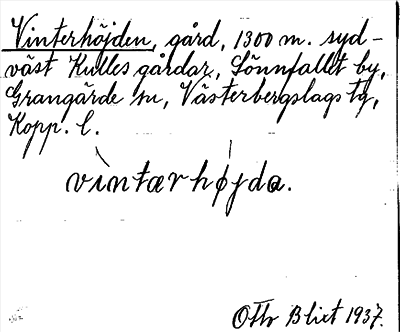 Vinterhöjden, gård, 1300 m. syd-
väst Kulles gårdar, Sönnfallet by,
Grangärde sn, Västerbergslags tg,
Kopp. l.
vìntærhøjda.
Otto Blixt 1937.